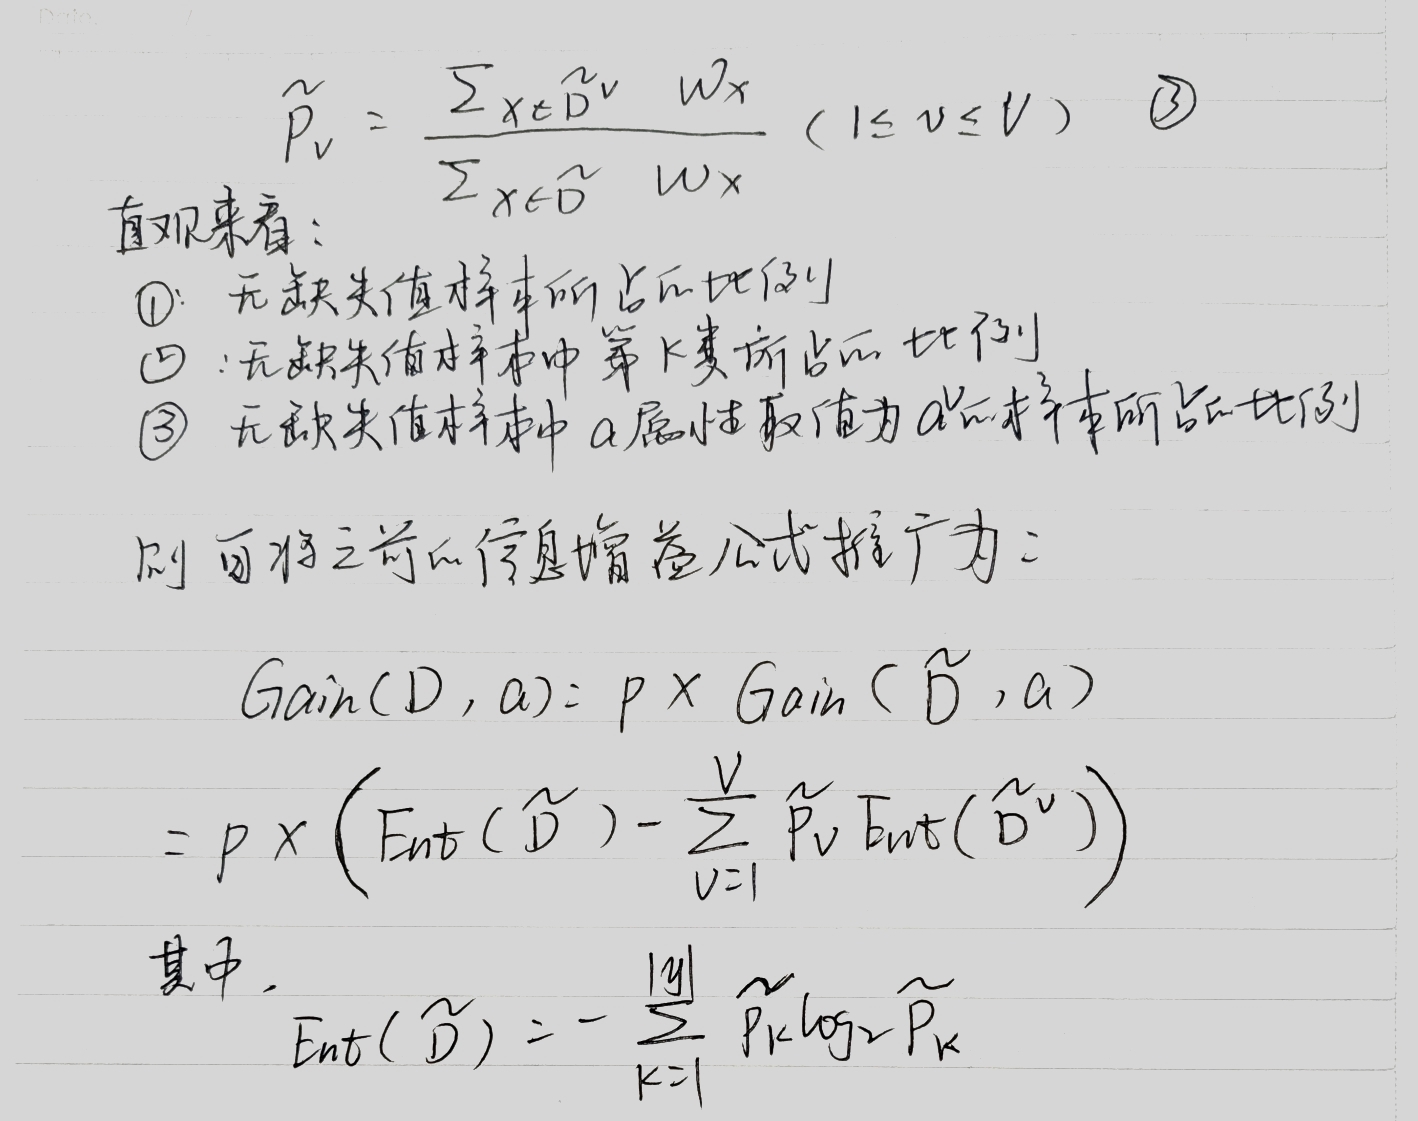 p̃_v = Σ_{x∈D̃^v} w_x / Σ_{x∈D̃} w_x (1≤v≤V) ③
直观来看：
①：无缺失值样本所占的比例
②：无缺失值样本中第k类所占的比例
③ 无缺失值样本中a属性取值为a^v的样本所占的比例
则可将之前的信息增益公式推广为：
Gain(D, a) = p × Gain(D̃, a)
= p × (Ent(D̃) - Σ_{v=1}^{V} p̃_v Ent(D̃^v))
其中，
Ent(D̃) = - Σ_{k=1}^{|y|} p̃_k log₂ p̃_k